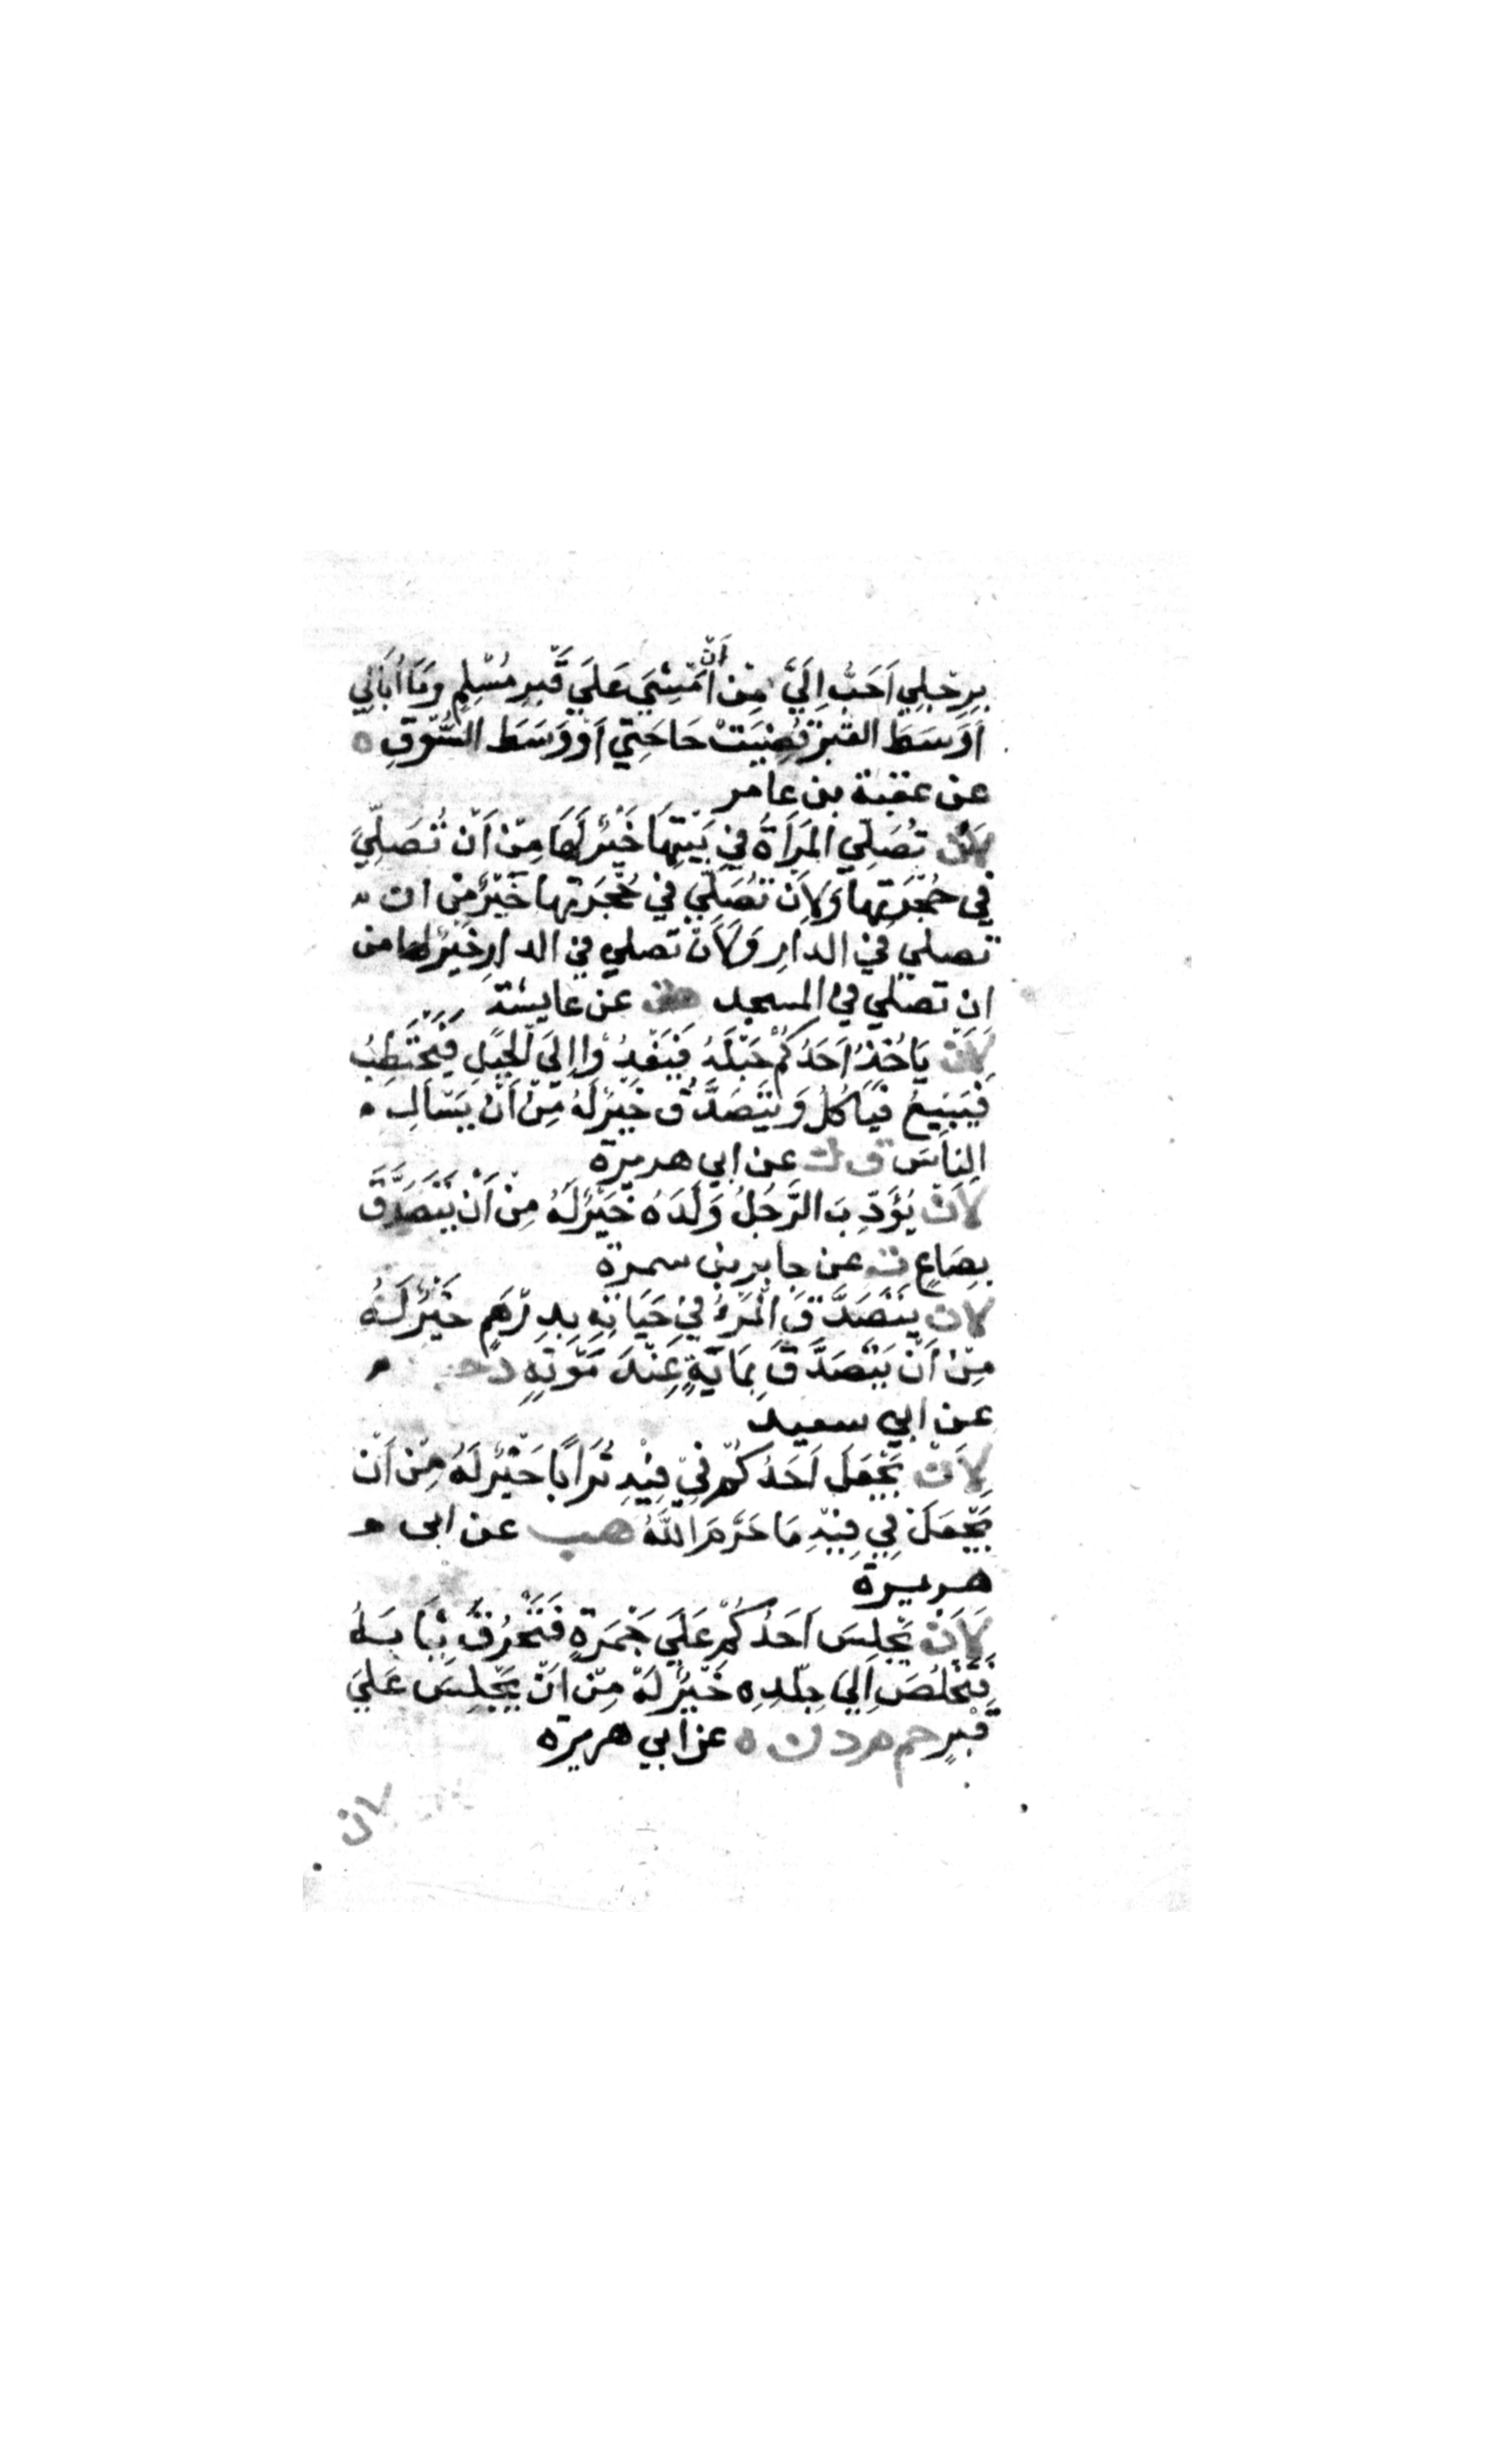 بِرِجْلِي اَحَبُّ اِلَيَّ مِنْ اَنْ اَمْشِيَ عَلَي قَبْرِ مُسْلِمٍ وَمَا اُبَالِي
اَوَسَطَ القَبْرِ قُضِيَتْ حَاجَتِي اَوْ وَسَطَ السُّوْقِ ه
عن عقبة بن عامر
لَاَنْ تُصَلِّيَ المَرْاَةُ فِي بَيْتِهَا خَيْرٌ لَهَا مِنْ اَنْ تُصَلِّيَ
فِي حُجْرَتِهَا وَلَاَنْ تُصَلِّيَ فِي حُجْرَتِهَا خَيْرٌ مِنْ ان
تصلي فِي الدارِ وَلَاَنْ تصلي في الدارِ خَيْرٌ لها من
ان تصلي في المسجد هق عن عايشة
لَاَنْ يَاخُذَ اَحَدُكُمْ حَبْلَهُ فَيَغْدُوْا اِلَى الْجَبَلِ فَيَحْتَطِبُ
فَيَبِيعُ فَيَاكُلُ وَيَتَصَدَّقُ خَيْرٌ لَهُ مِنْ اَنْ يَسْاَلَ
النَاسَ ق ن عن ابي هريرة
لَاَنْ يُؤَدِّبَ الرَّجُلُ وَلَدَهُ خَيْرٌ لَهُ مِنْ اَنْ يَتَصَدَّقَ
بِصَاعٍ ت عن جابر بن سمرة
لان يَتَصَدَّقَ الْمَرْءُ فِي حَيَاتِهِ بِدِرْهَمٍ خَيْرٌ لَهُ
مِنْ اَنْ يَتَصَدَّقَ بِمَايَةٍ عِنْدَ مَوْتِهِ د حب
عن ابي سعيد
لَاَنْ يَجْعَلَ اَحَدُكُمْ فِي فِيْهِ تُرَابًا خَيْرٌ لَهُ مِنْ اَنْ
يَجْعَلَ فِي فِيْهِ مَا حَرَّمَ اللَّهُ هب عن ابى
هريرة
لَاَنْ يَجْلِسَ اَحَدُكُمْ عَلَي جَمْرَةٍ فَتَحْرُقَ ثِيَابَهُ
فَتَخْلُصَ اِلَى جِلْدِهِ خَيْرٌ لَهُ مِنْ اَنْ يَجْلِسَ عَلَي
قَبْرٍ حم م د ن ه عن ابي هريرة
لان